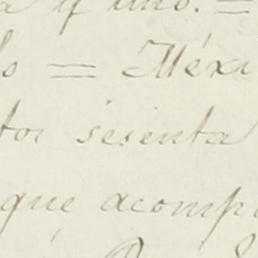 a y uno. =
o = Méxi
tos sesenta
que acompa